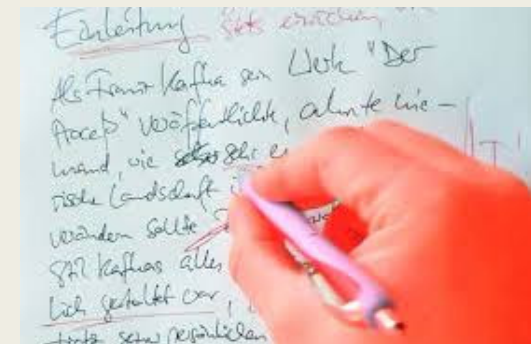 Einleitung
Als Franz Kafka sein Werk "Der
Proceß" veröffentlichte, ahnte nie-
mand, wie sehr
rische Landschaft
verändern sollte
Stil Kafkas alles
lich gestaltet war,
trotz seiner persönlichen